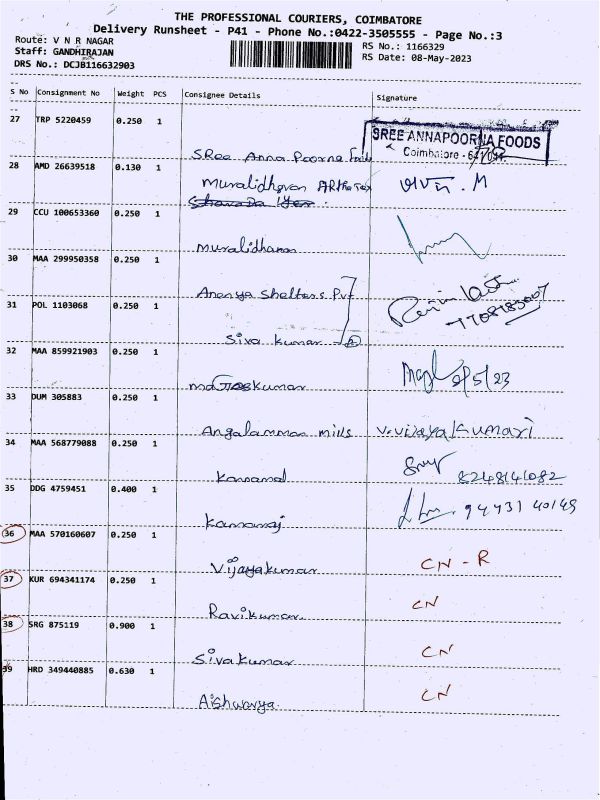 THE PROFESSIONAL COURIERS, COIMBATORE
Delivery Runsheet - P41 - Phone No.:0422-3505555 - Page No.:3
Route: V N R NAGAR
Staff: GANDHIRAJAN
DRS No.: DCJB116632903
RS No.: 1166329
RS Date: 08-May-2023
S No Consignment No Weight PCS Consignee Details Signature
27 TRP 5220459 0.250 1
SREE ANNAPOORNA FOODS
Coimbatore -
SRee Anna Poorna
28 AMD 26639518 0.130 1
Muralidharan
29 CCU 100653360 0.250 1
Muralidharan
30 MAA 299950358 0.250 1
Ananya Shelters Pvt
31 POL 1103068 0.250 1
7708183007
Siva kumar
32 MAA 859921903 0.250 1
8/5/23
33 DUM 305883 0.250 1
Angalamman mills V. Vijaya Kumari
34 MAA 568779088 0.250 1
8248141082
35 DDG 4759451 0.400 1
94431 40149
Kamaraj
36 MAA 570160607 0.250 1
Vijayakumar CN - R
37 KUR 694341174 0.250 1
Ravikumar CN
38 SRG 875119 0.900 1
Sivakumar CN
39 HRD 349440885 0.630 1
Aishwarya CN